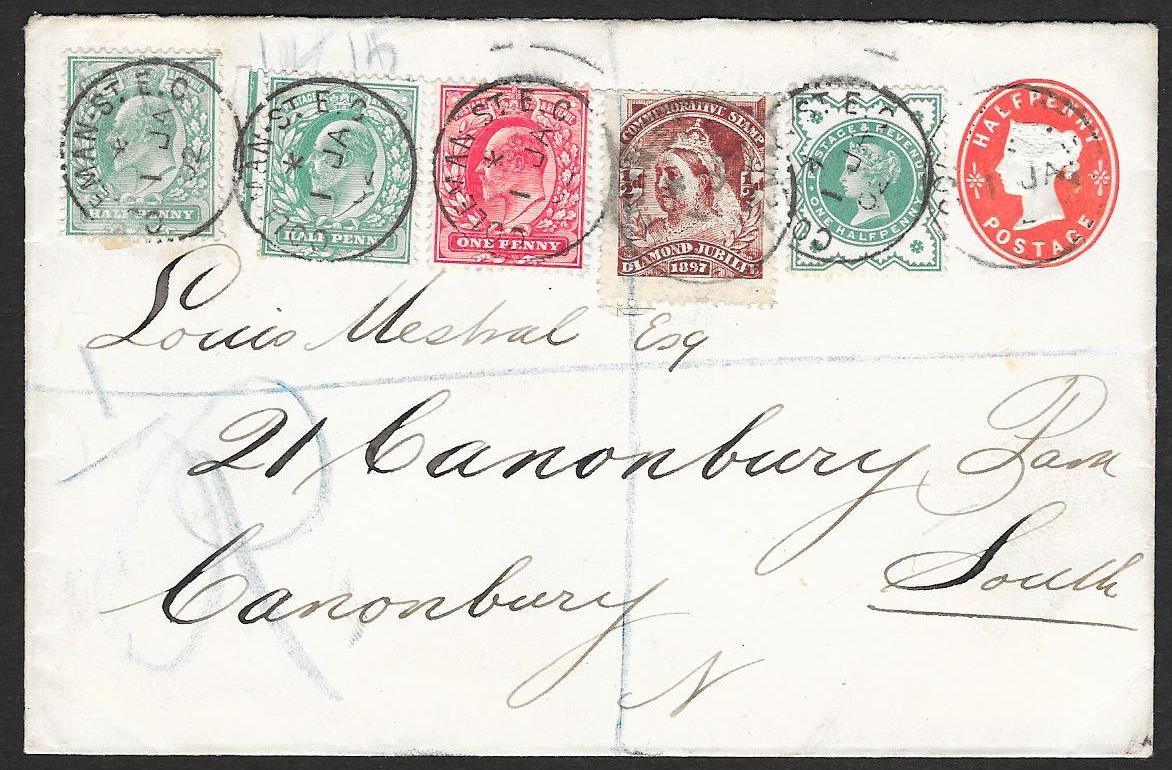 COLEMAN ST. E.C.
* 1 JA 02
HALF PENNY
POSTAGE AND REVENUE
COLEMAN ST. E.C.
* 1 JA 02
HALF PENNY
COLEMAN ST. E.C.
* 1 JA
ONE PENNY
COMMEMORATIVE STAMP
1/2 1/2
DIAMOND JUBILEE
1897
COLEMAN ST. E.C.
1 JA 02
POSTAGE & REVENUE
ONE HALFPENNY
HALFPENNY
JA
POSTAGE
Louis Mestral Esq
21 Canonbury Park
South
Canonbury
N
R